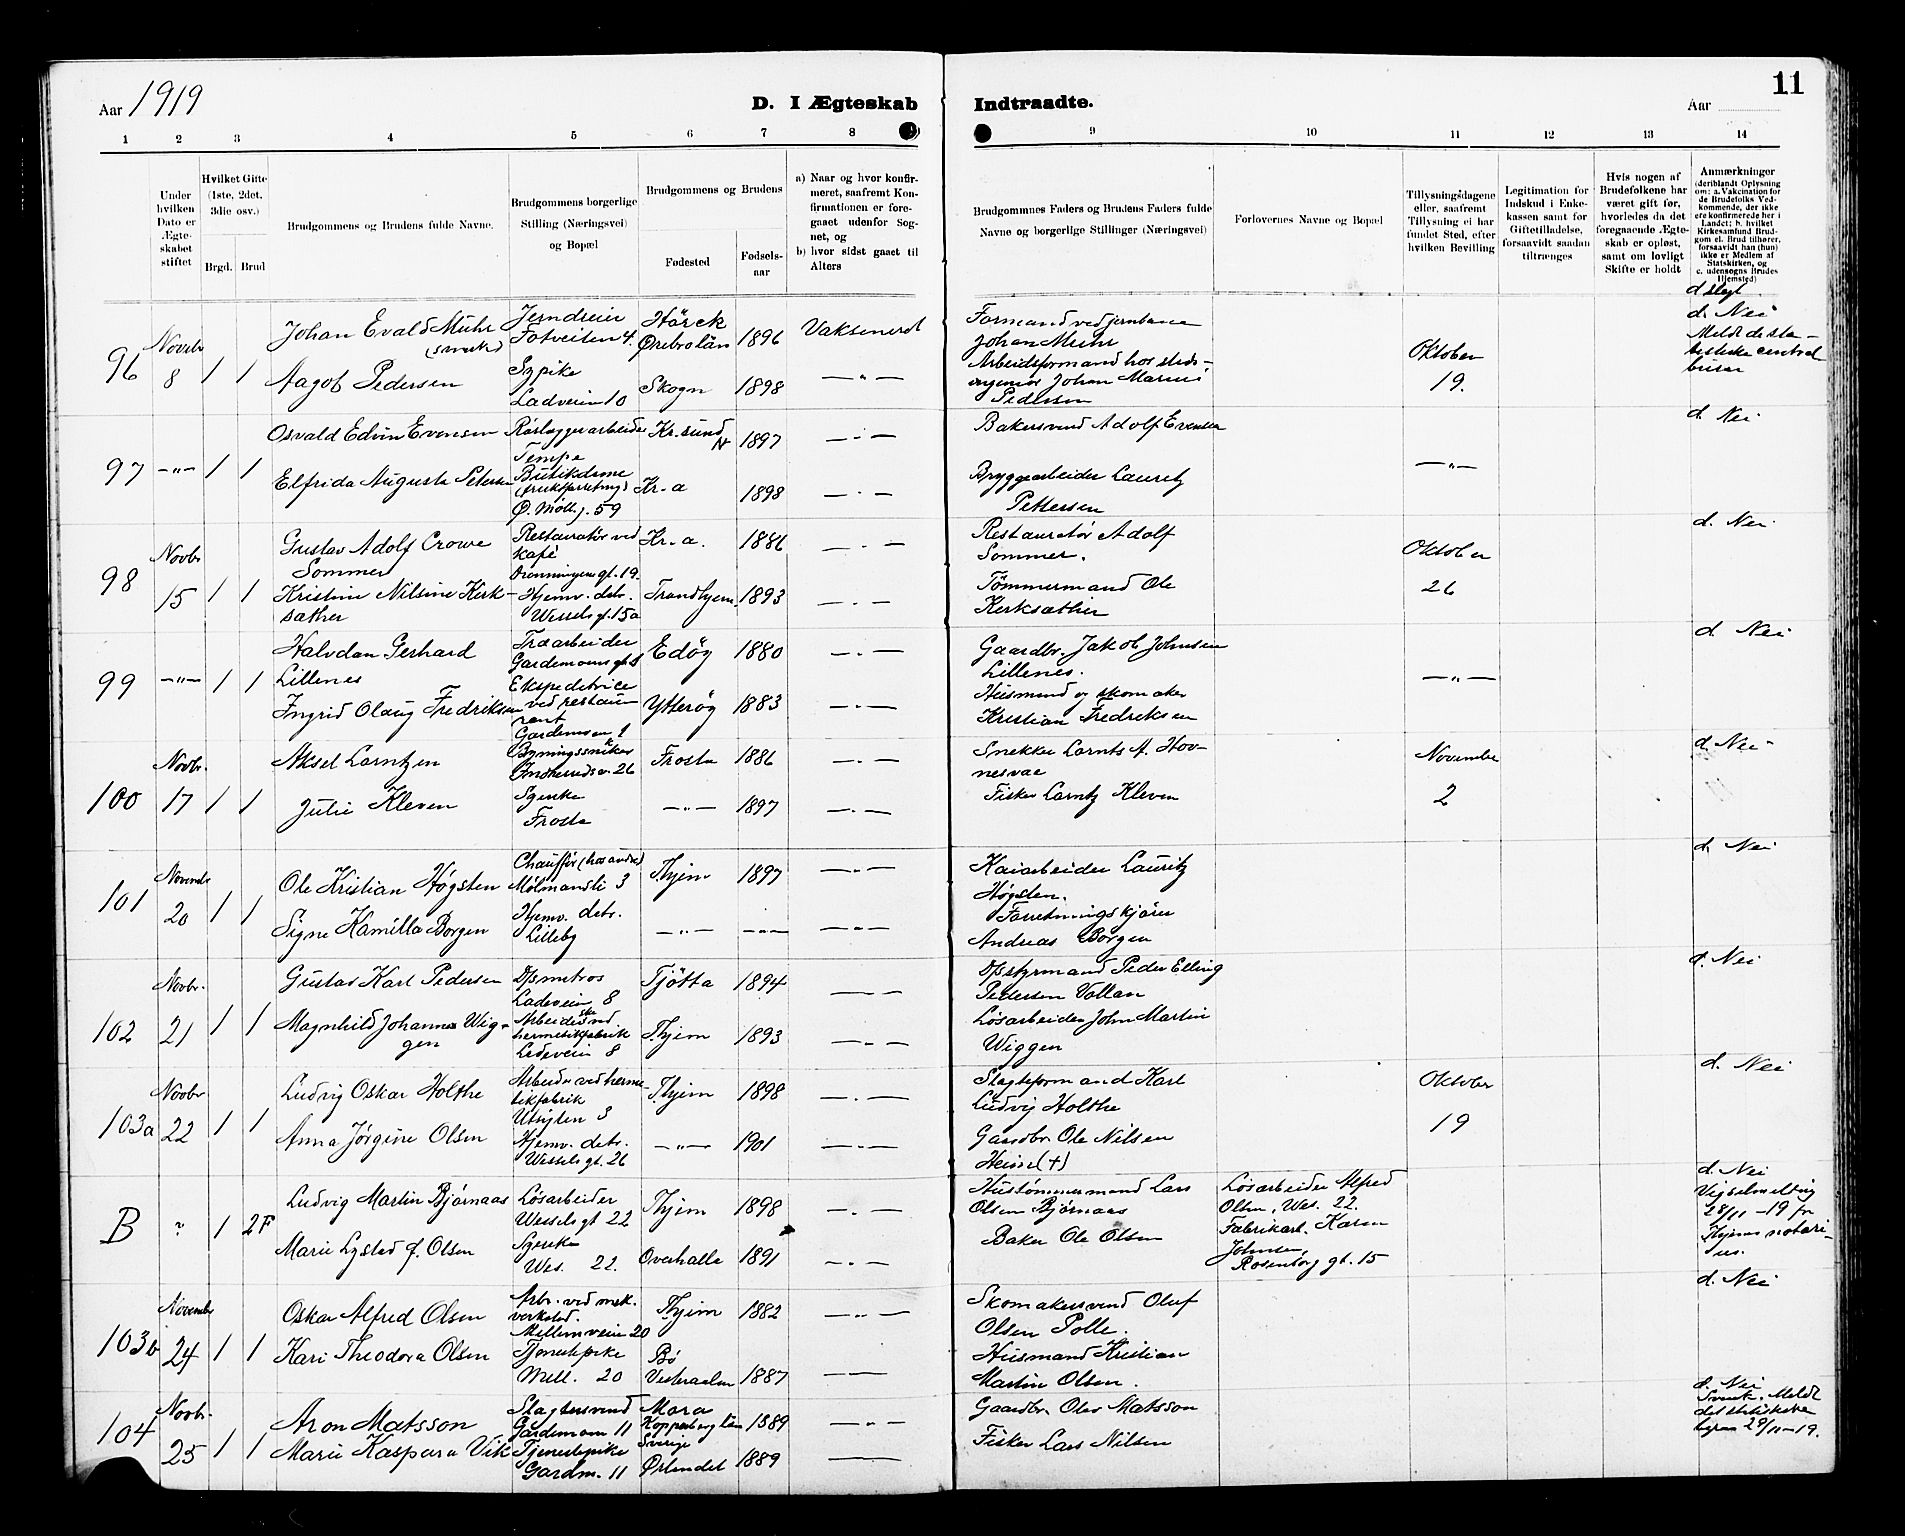 Aar 1919
D. I Ægteskab
Indtraadte.
Aar
11
1 2 3 4 5 6 7 8 9 10 11 12 13 14
Under hvilken Dato er Ægteskabet stiftet
Hvilket Gifte (1ste, 2det, 3die osv.)
Brgd. Brud
Brudgommens og Brudens fulde Navne.
Brudgommens borgerlige Stilling (Næringsvei) og Bopæl
Brudgommens og Brudens
Fødested
Fødselsaar
a) Naar og hvor konfirmeret, saafremt Konfirmationen er foregaaet udenfor Sognet, og
b) hvor sidst gaaet til Alters
Brudgommnes Faders og Brudens Faders fulde Navne og borgerlige Stillinger (Næringsvei)
Forlovernes Navne og Bopæl
Tillysningsdagene eller, saafremt Tillysning ei har fundet Sted, efter hvilken Bevilling
Legitimation for Indskud i Enkekassen samt for Giftetilladelse, forsaavidt saadan tiltrænges
Hvis nogen af Brudefolkene har været gift før, hvorledes da det foregaaende Ægteskab er opløst, samt om lovligt Skifte er holdt
Anmærkninger (deriblandt Oplysning om: a. Vakcination for de Brudefolks Vedkommende, der ikke ere konfirmerede her i Landet; b. hvilket Kirkesamfund Brudgom el. Brud tilhører, forsaavidt han (hun) ikke er Medlem af Statskirken, og c. udensogns Brudes Hjemsted)
d slegt
96
Novbr
8
1 1
Johan Evald Muhr
Aagot Pedersen
Jerndreier
Fotveiten 4.
Sypike
Ladveien 10
Hörck
Örebrolän 1896
Skogn 1898
Vaksenert
— „ —
Formand ved jernbane
Johan Muhr
Arbeidsformand hos stads-
ingeniør Johan Marius
Pedersen
Oktober
19.
d. Nei
Meldt de sta-
tistiske central
97
— „ —
1 1
Osvald Edvin Evensen
Elfrida Augusta Petersen
Rørlæggerarbeider
Tempe
Butikdame
Ø. Møll.g. 59
Kr.sund
N 1897
Kr-a 1898
— „ —
— „ —
Bakersvend Adolf Evensen
Bryggearbeider Lauritz
Pettersen
— „ —
d. Nei
98
Novbr
15
1 1
Gustav Adolf Crowe
Sommer
Kristine Nilsine Kerk-
sæther
Restauratør ved
kafé
Dronningens gt. 19.
Hjemv. datr.
Wessels g. 15a
Kr-a. 1886
Trondhjem 1893
— „ —
— „ —
Restauratør Adolf
Sommer.
Tømmermand Ole
Kerksæther
Oktober
26
d. Nei
99
— „ —
1 1
Halvdan Gerhard
Lillenes
Ingrid Olaug Fredriksen
Træarbeider
Ekspeditrice
ved restau
rant
Gardemoen 1
Edöy 1880
Ytterøy 1883
— „ —
— „ —
Gaardbr. Jakob Johnsen
Lillenes.
Husmand og skomaker
Kristian Fredriksen
— „ —
d. Nei
100
Novbr.
17
1 1
Aksel Larntzen
Julie Kleven
Bygningssnekker
Indherredsv. 26
Syerske
Frosta
Frosta 1886
— „ — 1897
— „ —
— „ —
Snekker Larnts A. Hov-
nesvae
Fisker Larntz Kleven
November
2
d. Nei
101
Novembr
20
1 1
Ole Kristian Høgsten
Signe Kamilla Borgen
Chauffør (hos andre)
Møllmansli 3
Hjemv. datr.
Lilleby
T.hjem 1897
— „ — — „ —
— „ —
— „ —
Kaiarbeider Lauritz
Høgsten.
Forretningskjører
Andreas Borgen
d. Nei
102
Novbr.
21
1 1
Gustav Karl Pedersen
Magnhild Johanna Wig-
gen
Dpsmatros
Ladeveien 8
Arbeiderske ved
hermetikfabrik
Ladeveien 8
Tjötta 1894
T.hjem 1893
— „ —
— „ —
Dpstyrmand Peder Elling
Pedersen Vollan
Løsarbeider John Martin
Wiggen
d. Nei
103a
Novbr
22
1 1
Ludvig Oskar Holthe
Anna Jørgine Olsen
Arbeider ved herme-
tikfabrik
Utsigten 3
Hjemv. datr.
Wessels gt. 26
T.hjem 1898
— „ — 1901
— „ —
— „ —
Slagteformand Karl
Ludvig Holthe
Gaardbr. Ole Nilsen
Oktober
19
d. Nei
B
?
1 2F
Ludvig Martin Bjørnaas
Marie Lysted f. Olsen
Løsarbeider
Wessels gt 22
Syerske
Wes. 22.
T.hjem 1898
Overhalla 1891
— „ —
— „ —
Hustømmermand Lars
Olsen Bjørnaas
Baker Ole Olsen
Løsarbeider Alfred
Olsen, Wes. 22.
Fabrikarb. Karen
Johnsen,
Rosenborg gt. 15
d. Nei
Vigselmelding
28/11 - 19 fr
T.hjems notari-
us.
103b
Novembr
24
1 1
Oskar Alfred Olsen
Kari Theodora Olsen
Arbr. ved mek.
verksted.
Mellemveien 20
Tjenestepike
Mell. 20
T.hjem 1882
Bö
Vesteraalen 1887
— „ —
— „ —
Skomakersvend Oluf
Olsen Polle.
Husmand Kristian
Martin Olsen.
d. Nei
104
Novbr.
25
1 1
Aron Matsson
Marie Kaspara Vik
Slagtersvend
Gardemoen 11
Tjenestepike
Gardm. 11
Mora
Kopparberg län 1889
Sverige
Ørlandet 1889
— „ —
— „ —
Gaardbr. Olov Matsson
Fisker Lars Nilsen
d. Nei
Svensk. Meldt
det statistiske
29/11-19.